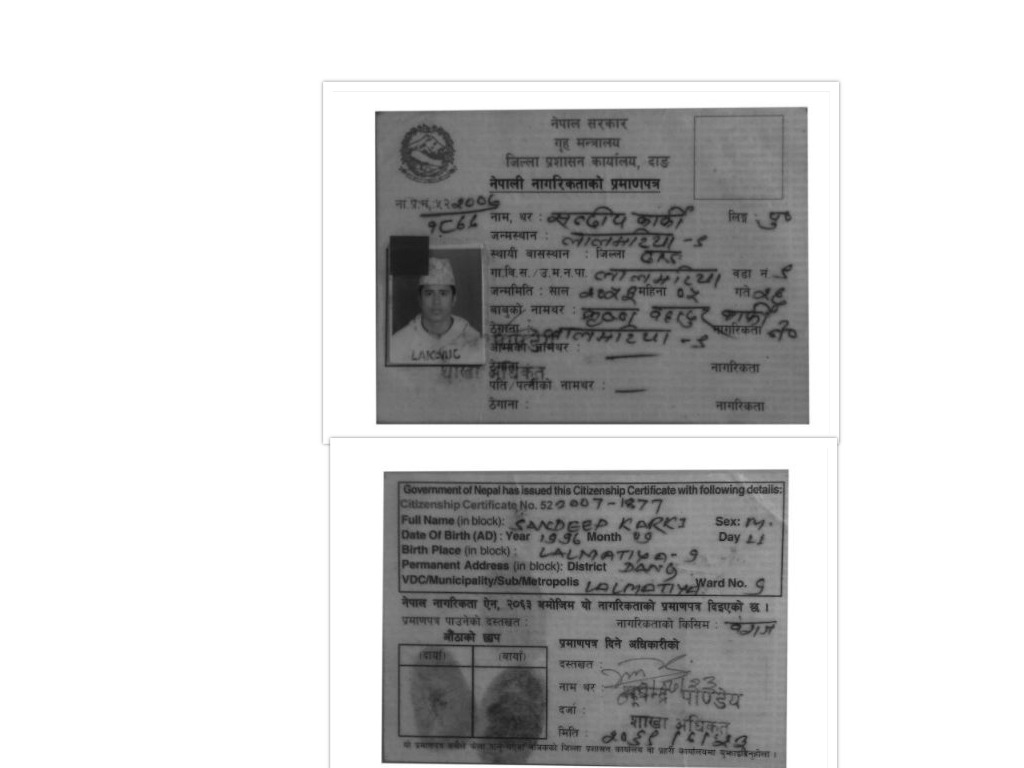 नेपाल सरकार
गृह मन्त्रालय
जिल्ला प्रशासन कार्यालय, दाङ
नेपाली नागरिकताको प्रमाणपत्र
ना.प्र.नं. ५२
नाम, थर : सन्दीप कार्की लिङ्ग पु॰
जन्मस्थान : लालमटिया - ९
स्थायी बासस्थान : जिल्ला दाङ
गा.वि.स./उ.म.न.पा. लालमटिया वडा नं ९
जन्ममिति : साल महिना गते
बाबुको नामथर : कृष्ण बहादुर कार्की
ठेगाना लालमटिया - ९ नागरिकता
आमाको नामथर :
ठेगाना नागरिकता
शाखा अधिकृत
पति/पत्नीको नामथर :
ठेगाना : नागरिकता
Government of Nepal has issued this Citizenship Certificate with following details:
Citizenship Certificate No. 52
Full Name (in block): SANDEEP KARKI Sex: M.
Date Of Birth (AD) : Year 1996 Month 09 Day
Birth Place (in block) : LALMATIYA - 9
Permanent Address (in block): District DANG
VDC/Municipality/Sub/Metropolis LALMATIYA Ward No. 9
नेपाल नागरिकता ऐन, २०६३ बमोजिम यो नागरिकताको प्रमाणपत्र दिइएको छ ।
प्रमाणपत्र पाउनेको दस्तखत : नागरिकताको किसिम : वंशज
औंठाको छाप
(दायाँ) (बायाँ)
प्रमाणपत्र दिने अधिकारीको
दस्तखत :
नाम थर : पाण्डेय
दर्जा : शाखा अधिकृत
मिति :